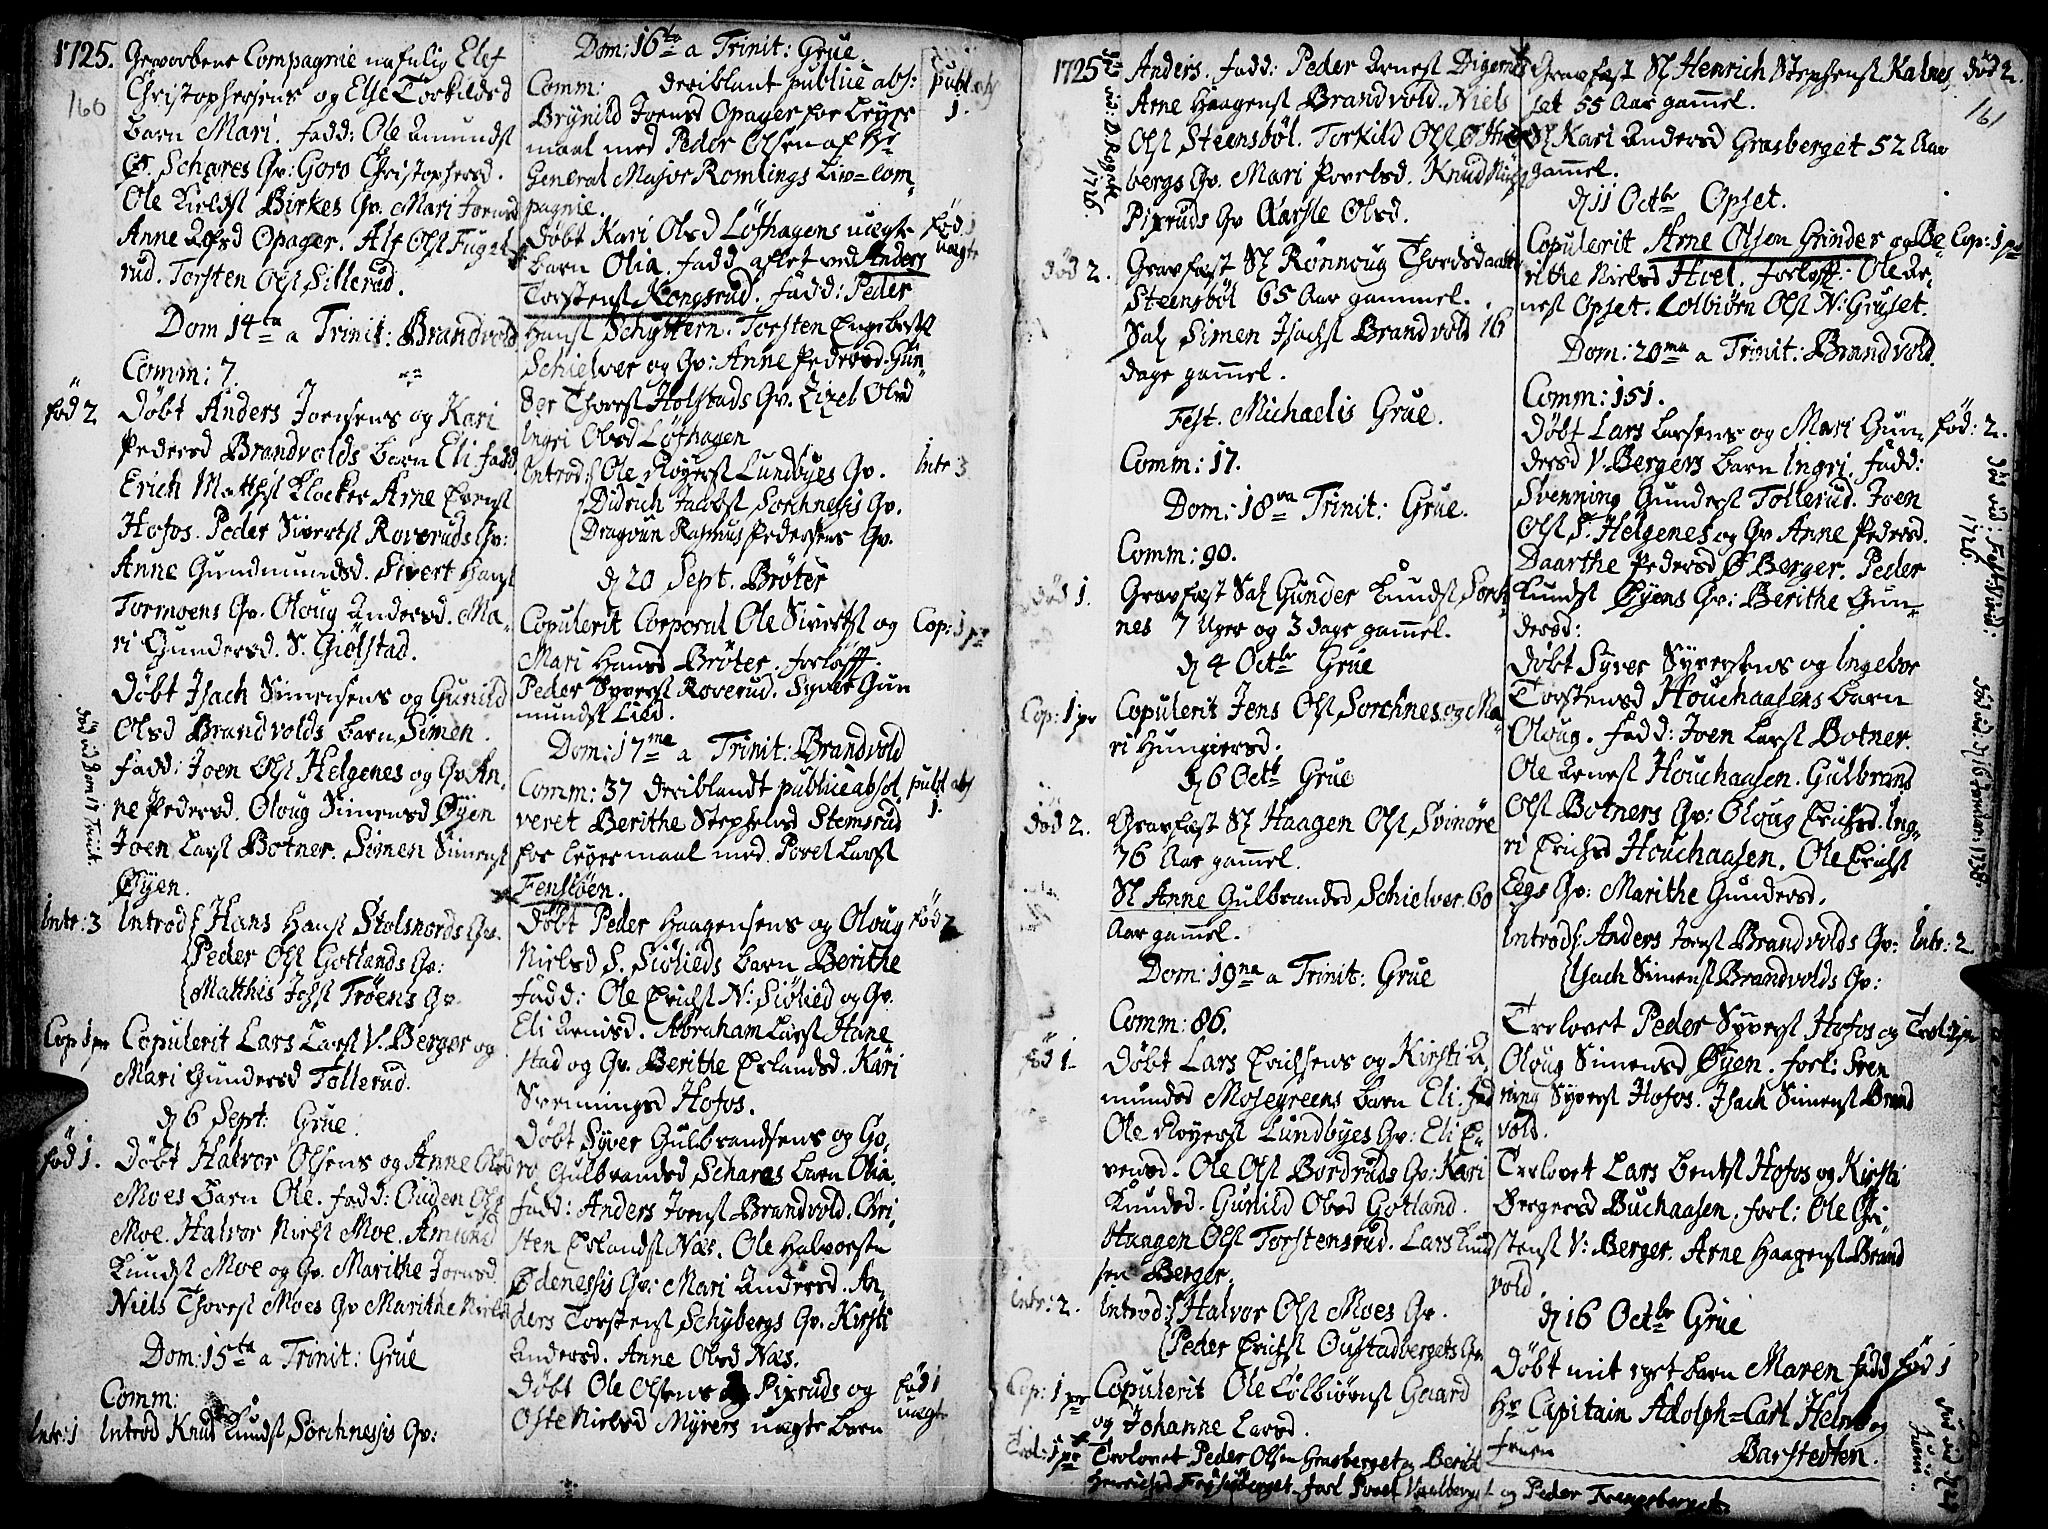 1725.
160
Gevorbene Compagnie nafnlig Elef
Christophersens og Else Torkildsd
barn Mari. fadd: Ole Amundsl
Ø. Schares Qv: Goro Christophersd.
Ole Kieldsl Birkes Qv. Mari Joensd
Anne Olsd Opager. Alf Olsl Fugel
rud. Torsten Olsl Sillerud.
Dom 14ta a Trinit: Brandvold
Comm: 7.
fød 2
Døbt Anders Joensens og Kari
Pedersd Brandvolds barn Eli. fadd
Erich Matthisl Klocker Arne Evensl
Hofos. Peder Sivertsl Roverude Qv:
Anne Gundmundsd. Sivert Hansl
Tormoens Qv. Oloug Andersd. Ma-
ri Gundersd. S. Giølstad.
Døbt Isach Simensens og Gunild
Olsd Brandvolds barn Simen.
død vid Dom 17 Trinit.
fadd: Joen Olsl Helgenes og Qv An-
ne Pedersd. Oloug Simensd Øyen
Joen Larsl Botner. Simen Simensl
Øyen.
Intr: 3
Introd: Hans Hansl Stolsnords Qv.
Peder Olsl Gotlands Qv:
Matthis Johsl Trøens Qv.
Cop: 1 pr
Copulerit Lars Larsl V. Berger og
Mari Gundersd Tollerud.
d 6 Sept: Grue.
fød 1.
Døbt Halvor Olsens og Anne Olsd
Moes barn Ole. fadd: Ouden Olsl
Moe. Halvor Nielsl Moe. Amund
Knudsl Moe og Qv. Marithe Joensd.
Niels Thoresl Moes Qv Marithe Nielsd
Dom: 15ta a Trinit: Grue
Comm:
Intr: 1
Introd Knud Knudsl Sorchnessis Qv:
Dom: 16ta a Trinit: Grue
Comm: deriblant publice abs:
publ abs
1.
Brynild Joensd Opager for Leyers
maal med Peder Olsen af Hr
General Major Romlings Liv=Com-
pagnie.
Døbt Kari Olsd Løfhagens uægte
fød 1
uægte
barn Olia. fadd aflet ved Anders
Torstensl Kongsrud. fadd: Peder
Hansl Schyttern. Torsten Engebretsl
Schielver og Qv: Anne Pedersd. Gun-
der Thoresl Holstads Qv. Lizel Olsd
Ingri Olsd Løfhagen
Introd: Ole Røyersl Lundbyes Qv.
Intr 3
Didrich Jacobsl Sorchnessis Qv.
Dragoun Rasmus Pedersens Qv.
d 20 Sept. Brøter
Copulerit Corporal Ole Sivertsl og
Cop: 1 pr
Mari Hansd Brøter. forlofft:
Peder Syversl Roverud. Syver Gun
mundsl Lied.
Dom: 17ma a Trinit: Brandvold
Comm: 37 deriblandt publice absol-
publ abs
1.
veret Berithe Stephelsd Stemsrud
for Leyersmaal med Povel Larsl
Fenstøen.
Døbt Peder Haagensens og Oloug
fød 2
Nielsd S. Siøliedss barn Berithe
fadd: Ole Erichsl N: Siølied og Qv.
Eli Arnisd. Abraham Larsl Hane
stad og Qv. Berithe Erlandsd. Kari
Svenningsd Hofos.
Døbt Syver Gulbrandsens og Go-
ro Gulbrandsd Schares barn Olia.
fadd: Anders Joensl Brandvold. Chri-
sten Erlandsl Næs. Ole Halvorsen
Ødenessis Qv: Mari Andersd. An-
ders Torstensl Schybergs Qv. Kirsti
Andersd. Anne Olsd Næs.
Døbt Ole Olsens Pixruds og
fød 1
uægte
Oste Nielsd Myrers uægte barn
1725
død vid: D. Rogate 1726.
Anders. fadd: Peder Arnesl Digernes
Arne Haagensl Brandvold. Niels
Olsl Steensbøl. Torkild Olsl Ø Hver
bergs Qv. Mari Povelsd. Knud Nielsl
Pixruds Qv Aasle Olsd.
død 2.
Gravfæst Sl Rønnoug Thordsdaatter
Steensbøl 65 Aar gammel.
Sal Simen Isachsl Brandvold 16
dage gammel.
Fest. Michaelis Grue.
Comm: 17.
Dom: 18va Trinit: Grue.
Comm: 90.
død 1.
Gravfæst Sal Gunder Knudsl Sorch
nes 7 Uger og 3 dage gammel.
d 4 Octbr Grue
Cop: 1 pr
Copulerit Jens Olsl Sorchnes og Ma-
ri Hungiersd.
d 6 Octb Grue
død 2.
Gravfæst Sl Haagen Olsl Svinøre
76 Aar gammel.
Sl Anne Gulbrandsd Schielver. 60
Aar gammel.
Dom: 19na a Trinit: Grue
Comm: 86.
fød 1.
Døbt Lars Erichsens og Kirsti A-
mundsd Mosegreens barn Eli. fad
Ole Røyersl Lundbyes Qv: Eli E-
vensd. Ole Olsl Bordruds Qv: Kari
Knudsd. Gunild Olsd Gotland.
Haagen Olsl Torstensrud. Lars Knud
sen Berger.
Intr: 2.
Introd: Halvor Olsl Moes Qv.
Peder Erichsl Oustadbergets Qv
Cop: 1 pr
Copulerit Ole Colbiørnsl Gaard
og Johanne Larsd.
Trol: 1 pr
Trolovet Peder Olsen Grasberget og Berith
Henrichsd Frysjøberget. forl Povel Vaalberget og Peder Frangsberget.
Gravfæst Sl Henrich Stephensl Kalnes
død 2.
161
set 55 Aar gammel.
Sl Kari Andersd Grasberget 52 Aar
gammel.
d 11 Octbr Opset.
Copulerit Arne Olsen Grinder og Be-
Cop: 1 pr
rithe Nielsd Hoel. forlofft: Ole Ar-
nesl Opset. Colbiørn Olsl N: Gruset.
Dom: 20ma a Trinit: Brandvold.
Comm: 151.
Døbt Lars Larsens og Mari Gun-
fød: 2.
dersd V. Bergers barn Ingri. fadd:
Svenning Gundersl Tollerud. Joen
1726.
Olsl S. Helgenes og Qv Anne Pedersd.
Daarthe Pedersd Ø Berger. Peder
Knudsl Øyens Qv: Berithe Gun-
dersd:
Døbt Syver Syversens og Ingebor
Torstensd Houchaasens barn
Oloug. fadd: Joen Larsl Botner.
Ole Arnesl Houchaasen. Gulbrand
Olsl Botners Qv: Oloug Erichsd. Ing-
ri Erichsd Houchaasen. Ole Erichsl
Eegs Qv: Marithe Gundersd.
Introd: Anders Joensl Brandvolds Qv:
Intr: 2
Isach Simensl Brandvolds Qv:
Trolovet Peder Syversl Hofos og
Trol: 2 pr
Oloug Simensd Øyen. forl: Sven
ning Syversl Hofos. Isach Simensl Brand
vold.
Trolovet Lars Bentsl Hofos og Kirsti
Bergersd Buchaasen. forl: Ole Chri-
stensl V: Berger. Arne Haagensl Brand
vold.
d 16 Octbr Grue
Døbt mit eget barn Maren fadd
fød 1
Hr Capitain Adolph=Carl Helm og
fruen Barstedten.